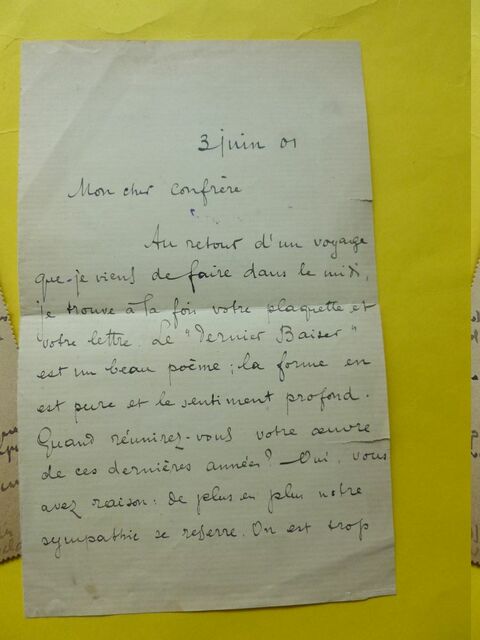 3 juin 01
Mon cher confrère
Au retour d'un voyage
que je viens de faire dans le midi,
je trouve à la fois votre plaquette et
votre lettre. Le "Dernier Baiser"
est un beau poème ; la forme en
est pure et le sentiment profond.
Quand réunirez-vous votre œuvre
de ces dernières années? — Oui, vous
avez raison : de plus en plus notre
sympathie se resserre. On est trop